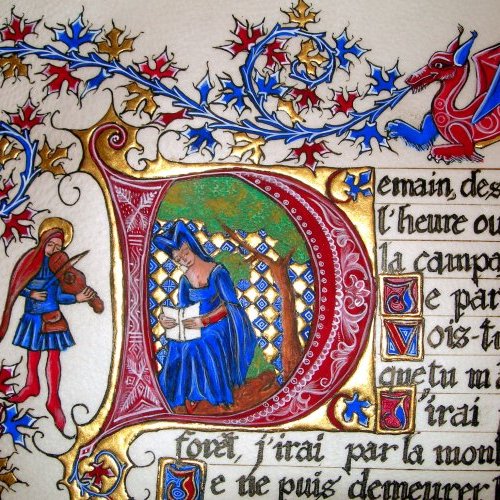 Demain, des
l'heure ou
la campa
Je par
Vois-tu
que tu m'
J'irai
forêt, j'irai par la mon
Je ne puis demeurer